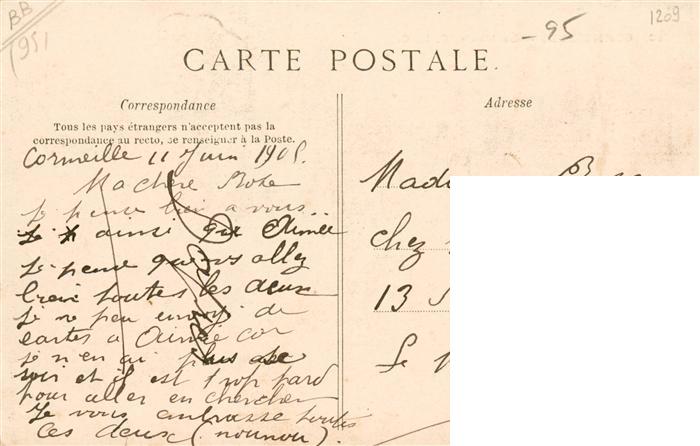 BB
1951
-95
1209
CARTE POSTALE.
Correspondance
Tous les pays étrangers n'acceptent pas la
correspondance au recto, se renseigner à la Poste.
Cormeille 11 Juin 1905.
Ma chère Rose
je pense bien a vous..
ainsi que Aimée
Je pense que vs allez
bien toutes les deux
Je ne peu envoyé de
cartes a Aimée car
je n en ai plus de
soir et il est trop tard
pour aller en chercher
Je vous embrasse toutes
les deux (nounou).
Adresse
chez
13